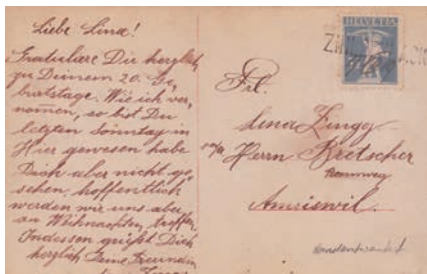 Liebe Lina!
Gratuliere Dir herzlich
zu Deinem 20. Ge-
burtstage. Wie ich ver-
nommen, so bist Du
letzten Sonntag in
Hier gewesen habe
Dich aber nicht ge-
sehen, hoffentlich
werden wir uns aber
an Weihnachten treffen.
Indessen grüßt Dich
herzlich Deine Freundin
HELVETIA
Frl.
Lina Zingg
Herrn Bretscher
Amriswil.